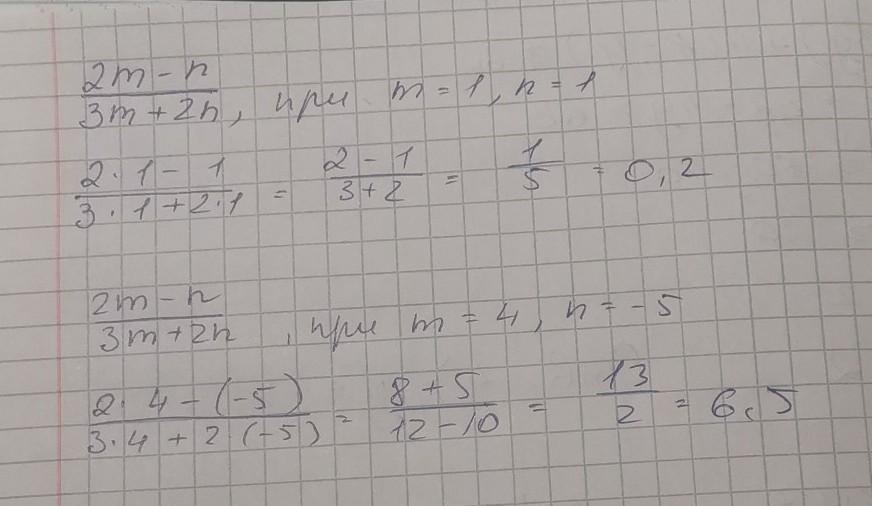 (2m - n)/(3m + 2n), при m = 1, n = 1
(2 · 1 - 1)/(3 · 1 + 2 · 1) = (2 - 1)/(3 + 2) = 1/5 = 0,2
(2m - n)/(3m + 2n), при m = 4, n = -5
(2 · 4 - (-5))/(3 · 4 + 2 (-5)) = (8 + 5)/(12 - 10) = 13/2 = 6,5